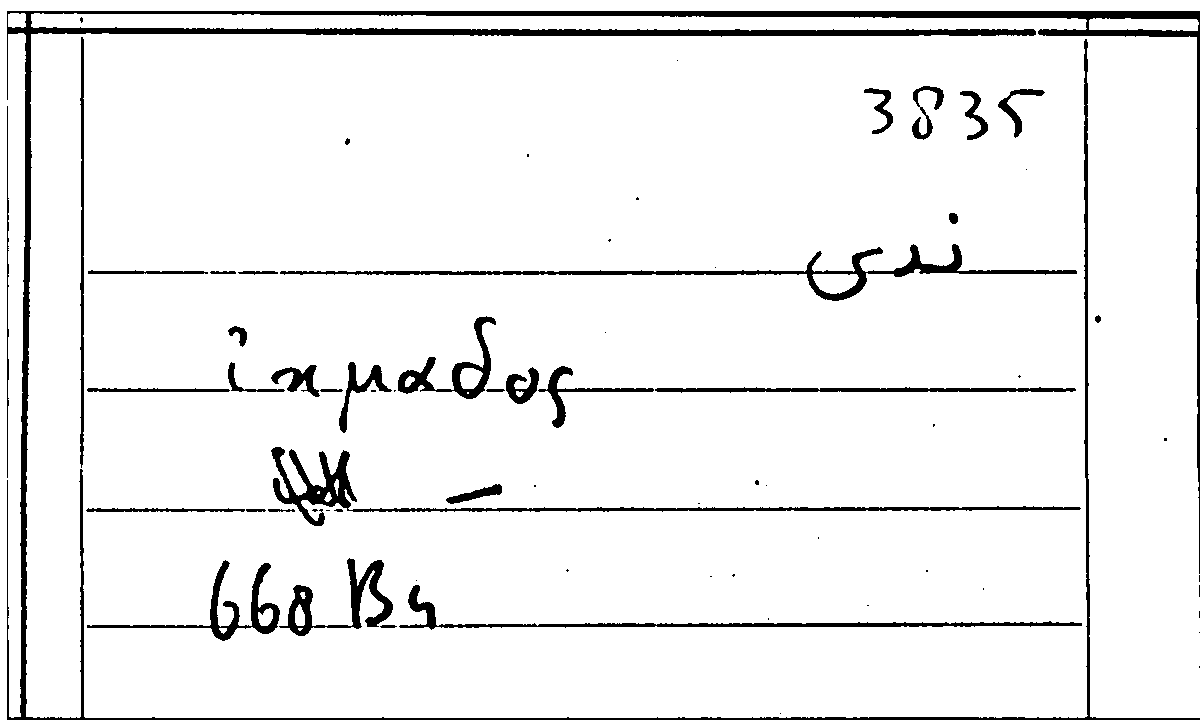 3835
ندى
ἰκμαδος
—
668 B4